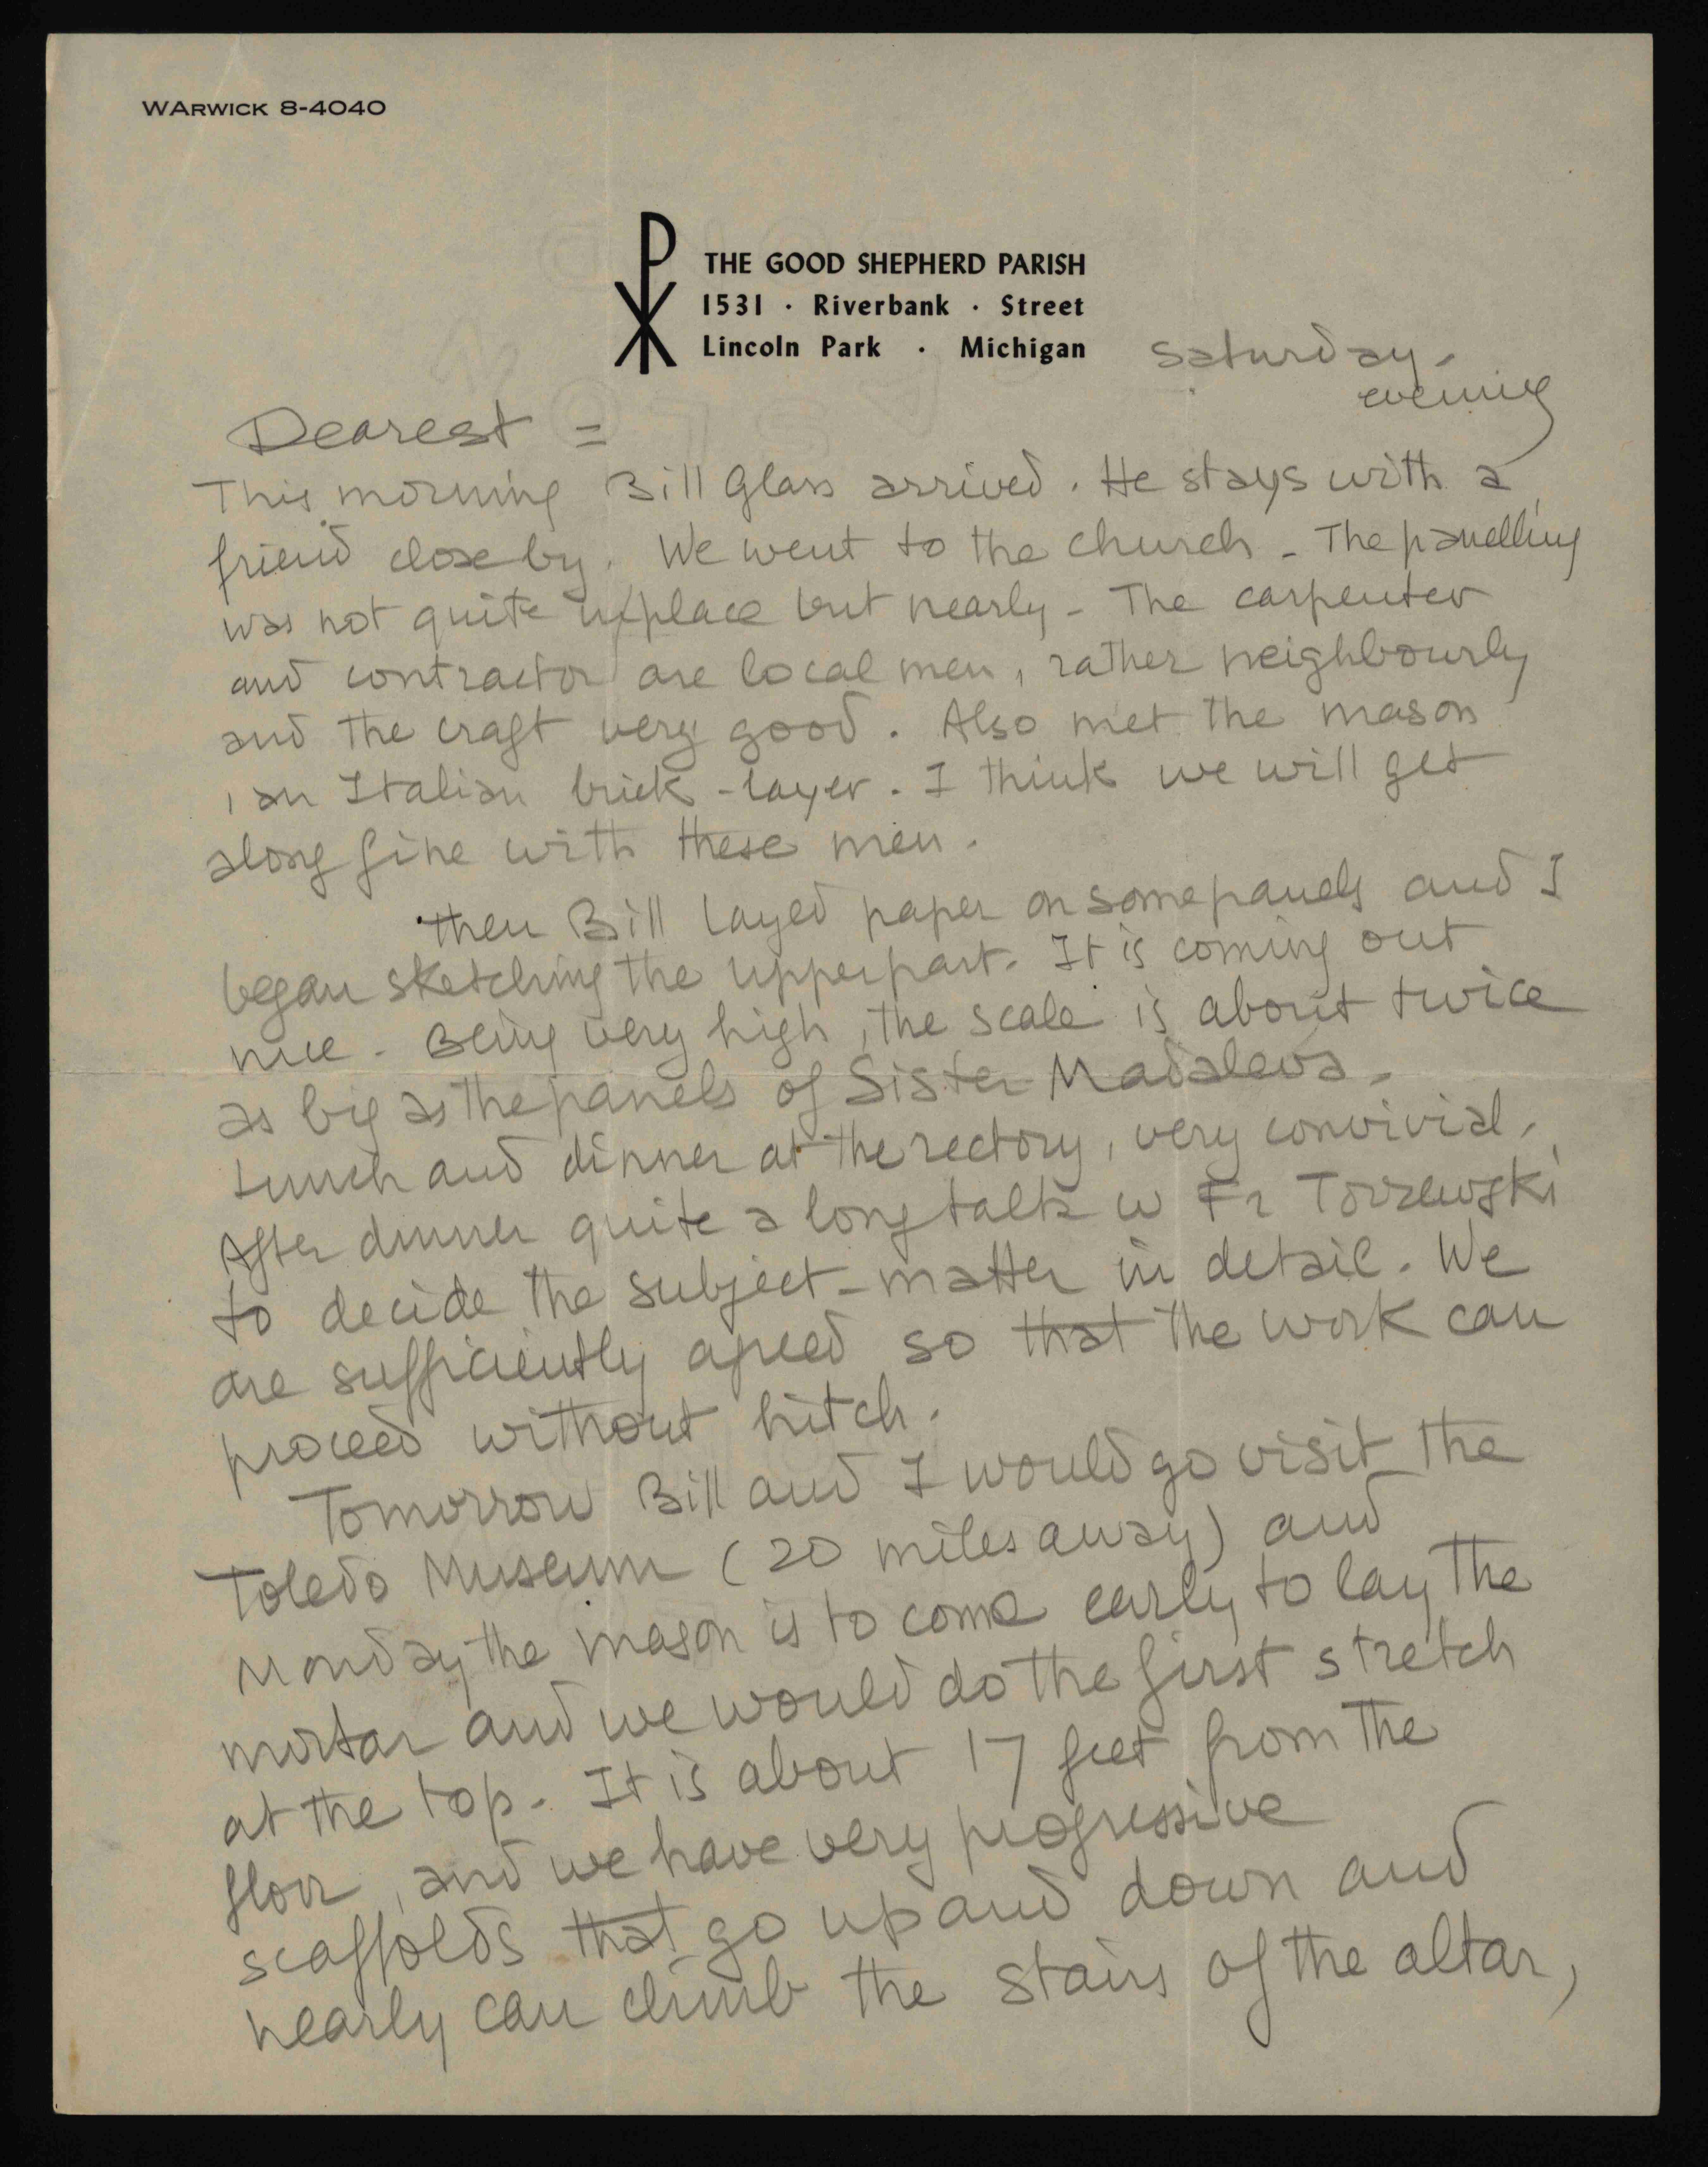 WARWICK 8-4040
THE GOOD SHEPHERD PARISH
1531 · Riverbank · Street
Lincoln Park · Michigan
Saturday.
evening
Dearest =
This morning Bill Glass arrived. He stays with a
friend close by. We went to the church - The panelling
was not quite in place but nearly - The carpenter
and contractor are local men, rather neighbourly
and the craft very good. Also met the mason
, an Italian brick-layer. I think we will get
along fine with these men.
Then Bill layed paper on some panels and I
began sketching the upper part. It is coming out
nice. Being very high, the scale is about twice
as big as the panels of Sister Madaleva.
Lunch and dinner at the rectory, very convivial.
After dinner quite a long talk w Fr
to decide the subject-matter in detail. We
are sufficiently agreed so that the work can
proceed without hitch.
Tomorrow Bill and I would go visit the
Toledo Museum (20 miles away) and
Monday the mason is to come early to lay the
mortar and we would do the first stretch
at the top. It is about 17 feet from the
floor, and we have very progressive
scaffolds that go up and down and
nearly can climb the stairs of the altar,